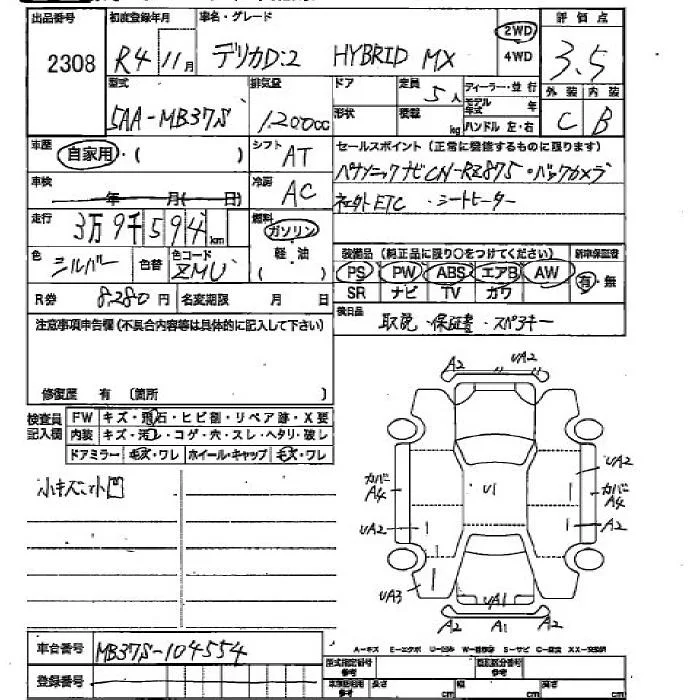 出品番号 初度登録年月 車名・グレード 評価点
2308 R4 11月 デリカD:2 HYBRID MX 2WD 4WD 3.5
型式 排気量 ドア 定員 ディーラー・並行 外装 内装
5AA-MB37S 1,200cc 5人 モデル年式 年 C B
形状 積載 kg ハンドル 左・右
車歴 自家用・( ) シフト AT セールスポイント(正常に機能するものに限ります)
パナソニックナビCN-RZ875・バックカメラ
車検 年 月(日) 冷房 AC 社外ETC・シートヒーター
走行 3万9千594km 燃料 ガソリン 軽・油 ( )
色 シルバー 色替 色コード ZMU
装備品(純正品に限り○をつけてください) 新車保証書
PS PW ABS エアB AW 有・無
SR ナビ TV カワ
R券 8,280円 名変期限 月 日 後日品 取説・保証書・スペアキー
注意事項申告欄(不具合内容等は具体的に記入して下さい)
修復歴 有 〔箇所 〕
検査員記入欄 FW キズ・飛石・ヒビ割・リペア跡・X要
内装 キズ・汚レ・コゲ・穴・スレ・ヘタリ・破レ
ドアミラー キズ・ワレ ホイール・キャップ キズ・ワレ
小キズ小凹
A2 UA2
UA2
カバーA4 U1 カバーA4
UA2 A2
UA3 UA1
A2 A1 A2
車台番号 MB37S-104554
A-キズ E-エクボ U-凹ミ W-補修跡 S-サビ C-腐食 XX-交換済
登録番号
型式指定番号 参考 類別区分番号 参考
参考 長さ cm 幅 cm 高さ cm